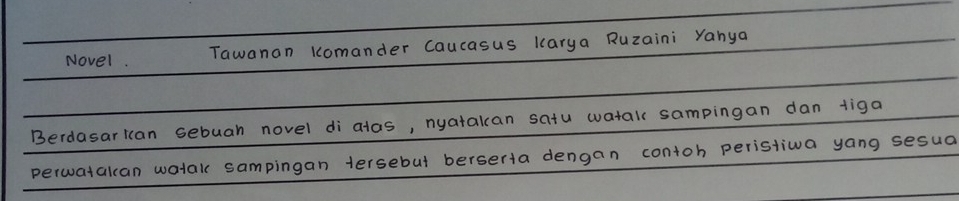 Novel . Tawanan Komander Caucasus Karya Ruzaini Yahya
Berdasarkan sebuah novel di atas , nyatakan satu watak sampingan dan tiga
perwatakan watak sampingan tersebut berserta dengan contoh peristiwa yang sesua